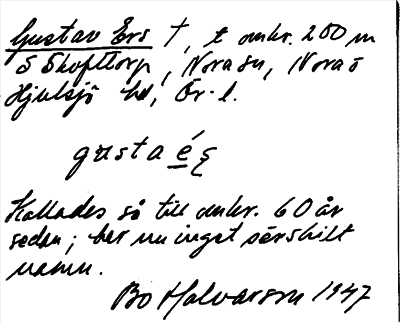 Gustav Ers †, t omkr. 200 m
S Skofttorp, Nora sn, Nora o
Hjulsjö hd, Ör. l.
gusta é ę
Kallades så till omkr. 60 år
sedan; har nu inget särskilt
namn.
Bo Halvarson 1947